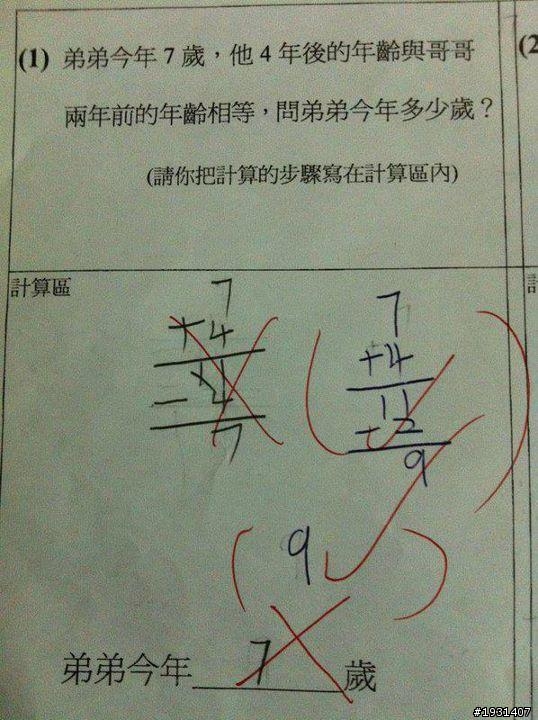 (1) 弟弟今年 7 歲，他 4 年後的年齡與哥哥
兩年前的年齡相等，問弟弟今年多少歲？
(請你把計算的步驟寫在計算區內)
(2
計算區
7
+4
11
-4
7
7
+4
11
-2
9
(9)
弟弟今年 7 歲
#1931407